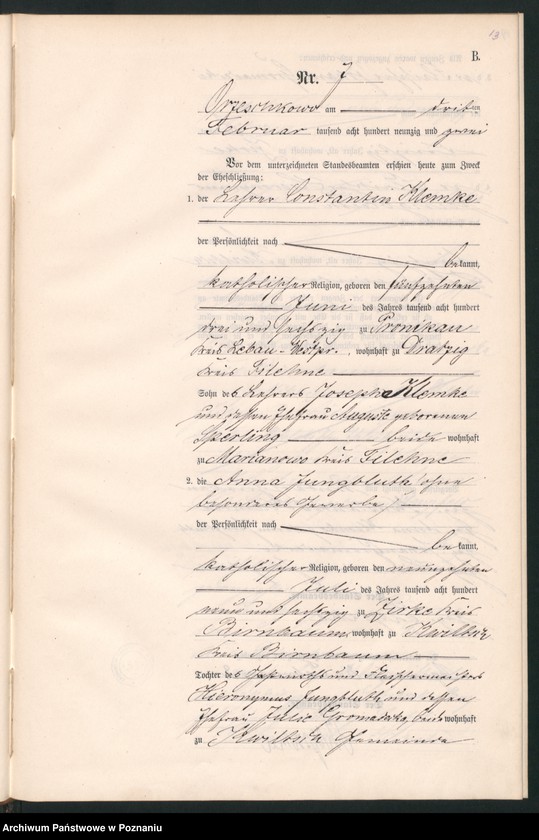 13
B.
Nr. 7
Orzeschkowo am dritten
Februar tausend acht hundert neunzig und zwei
Vor dem unterzeichneten Standesbeamten erschien heute zum Zweck
der Eheschließung:
1. der Lehrer Constantin Klemke
der Persönlichkeit nach
bekannt,
katholischer Religion, geboren den fünfzehnten
Juni des Jahres tausend acht hundert
drei und sechszig zu Pronikau
Kreis Lebau-Westpr., wohnhaft zu Dratzig
Kreis Filehne
Sohn des Lehrers Joseph Klemke
und dessen Ehefrau Auguste geborenen
Sperling beide wohnhaft
zu Marianowo Kreis Filehne
2. die Anna Jungbluth (ohne
besonderes Gewerbe)
der Persönlichkeit nach
bekannt,
katholischer Religion, geboren den neunzehnten
Juli des Jahres tausend acht hundert
neun und sechzig zu Zirke Kreis
Birnbaum, wohnhaft zu Kwiltsch
Kreis Birnbaum
Tochter des Gastwirths und Fleischermeisters
Hieronymus Jungbluth und dessen
Ehefrau Julie Gromadecka, beide wohnhaft
zu Kwiltsch Gemeinde
Archiwum Państwowe w Poznaniu